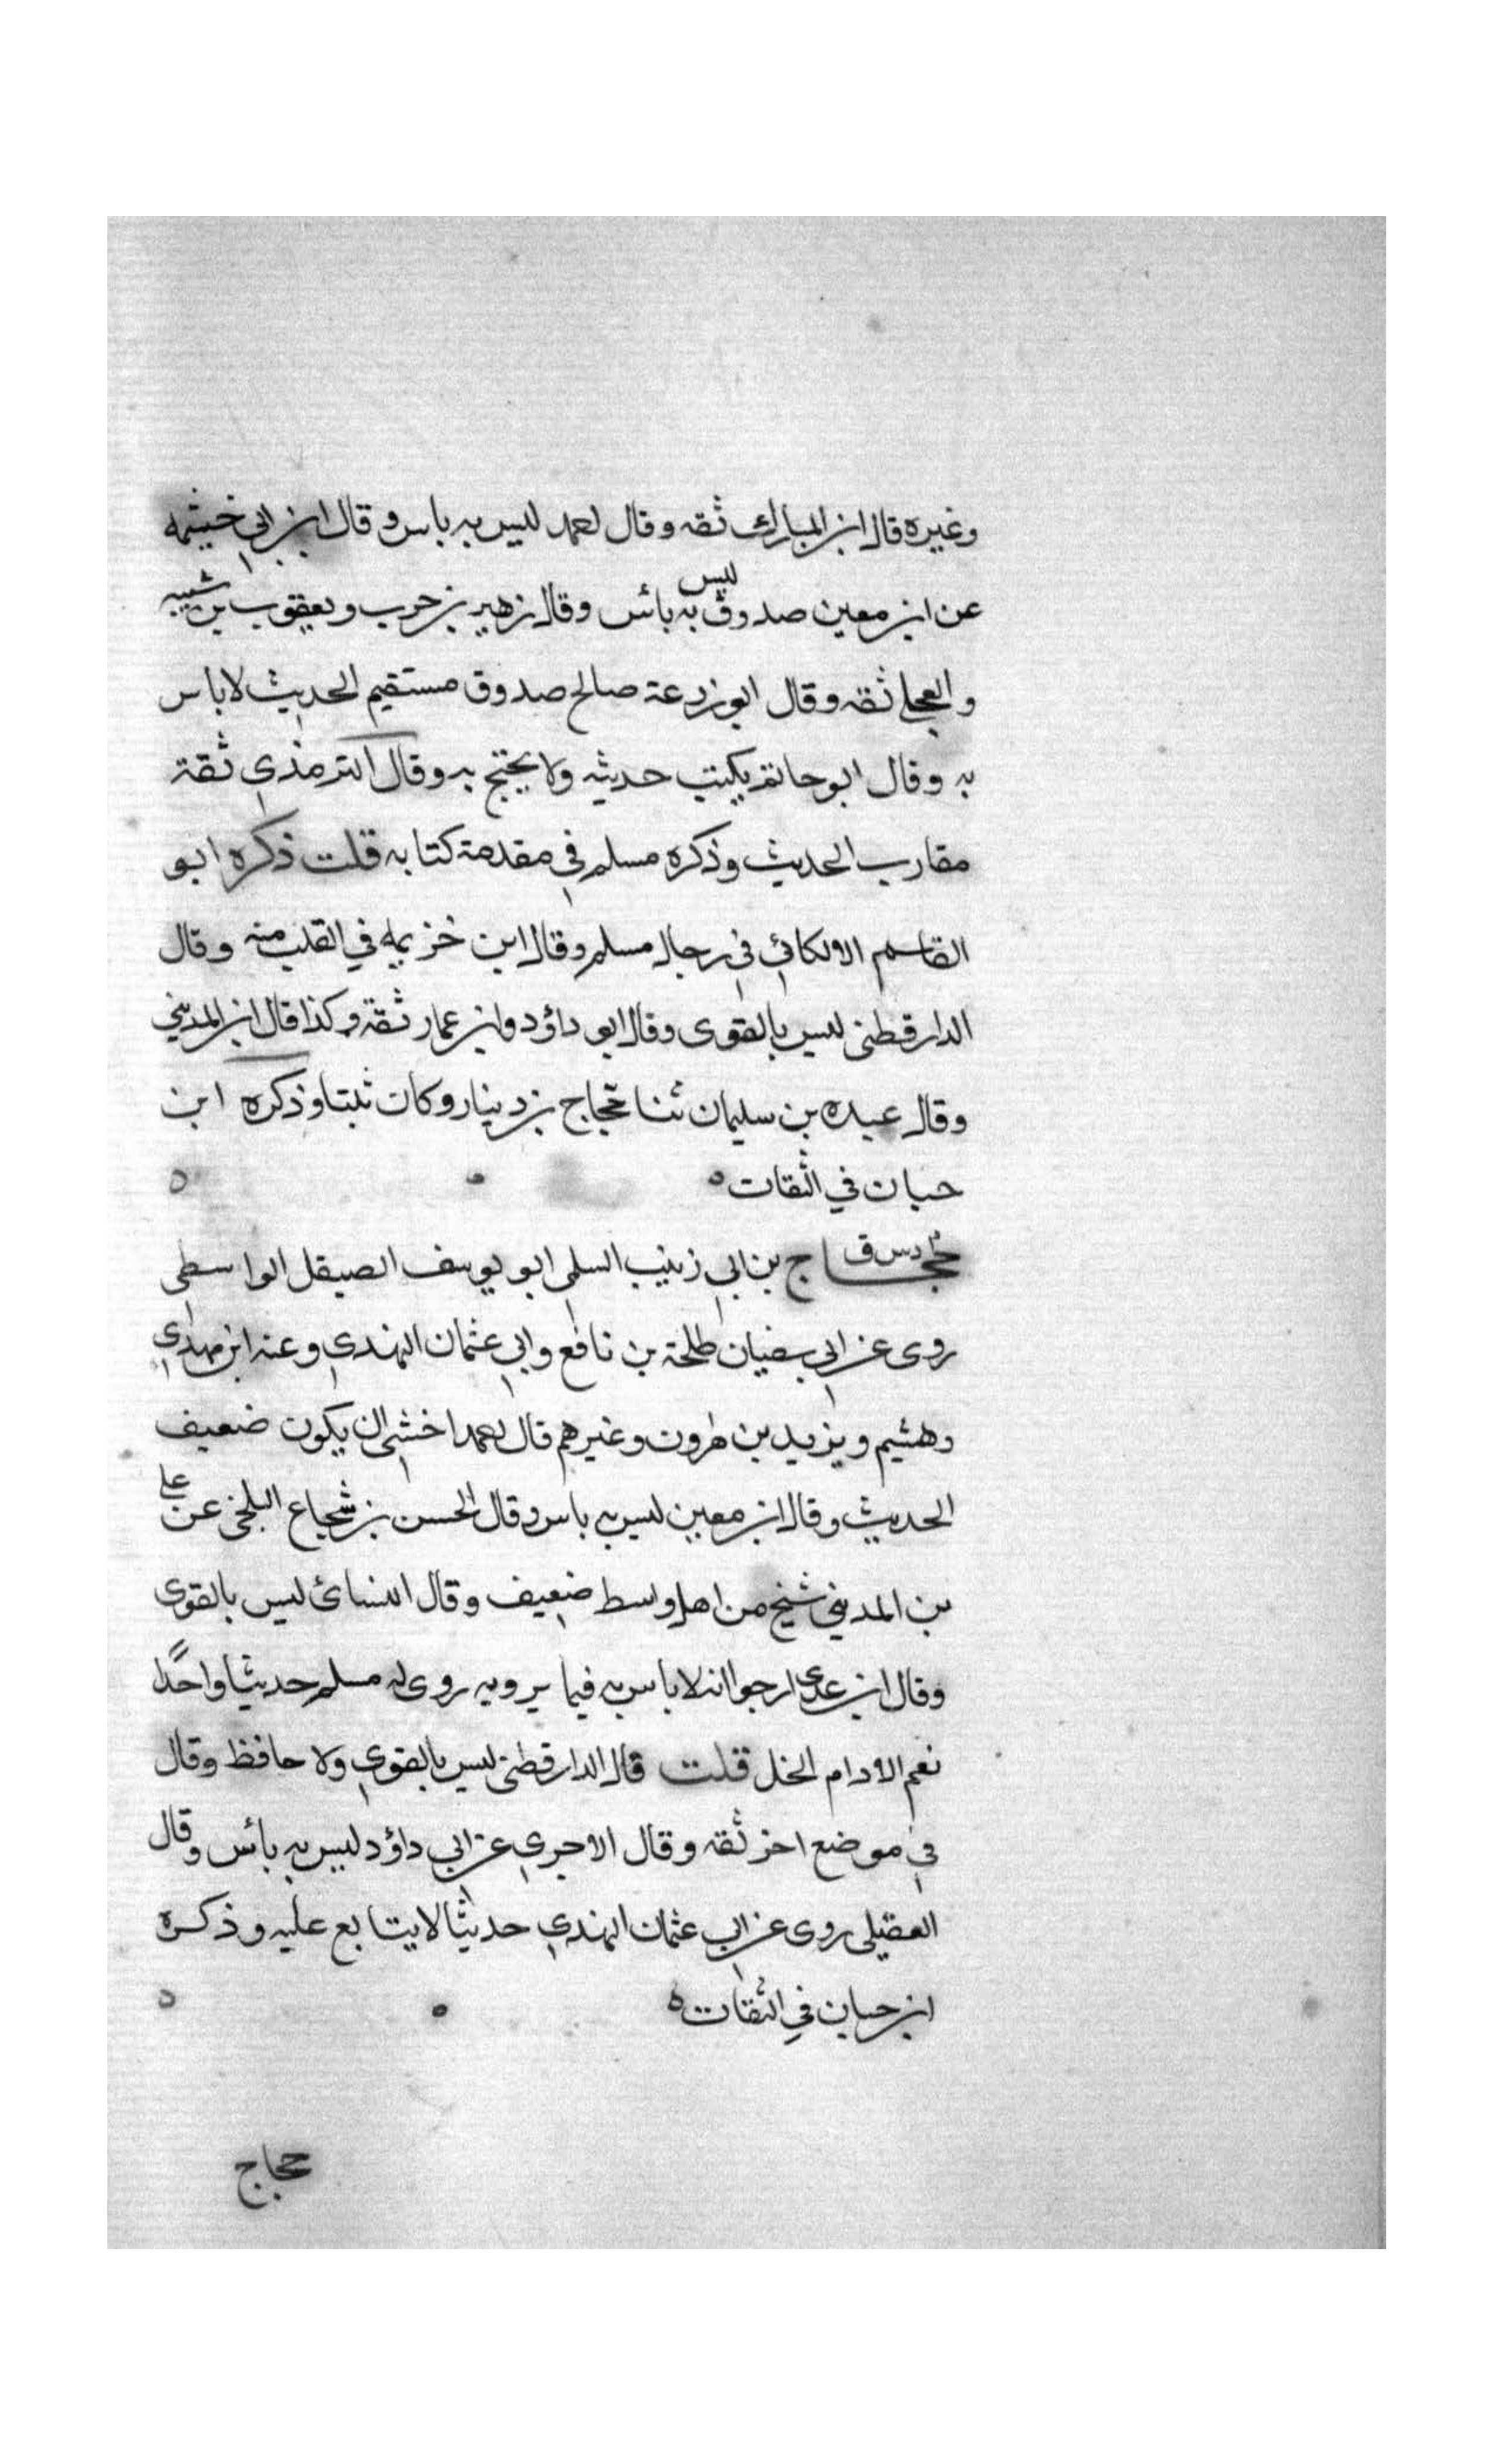 وغيره قال ابن المبارك ثقه وقال احمد ليس به باس وقال ابن ابي خيثمه
عن ابن معين صدوق ليس به بائس وقال زهير بن حرب ويعقوب بن شيبه
والعجلي ثقه وقال ابو زرعة صالح صدوق مستقيم الحديث لا باس
به وقال ابو حاتم يكتب حديثه ولا يحتج به وقال الترمذي ثقة
مقارب الحديث وذكره مسلم في مقدمة كتابه قلت ذكره ابو
القاسم الالكائي في رجال مسلم وقال ابن خزيمه في القلب منه وقال
الدارقطني ليس بالقوى وقال ابو داؤد وابن عمار ثقة وكذا قال ابن المديني
وقال عبده بن سليمان ثنا حجاج بن دينار وكان ثبتا وذكره ابن
حبان في الثقات ه ه
حجاج بن ابي زينب السلمي ابو يوسف الصيقل الواسطي
روى عن ابي سفيان طلحة بن نافع وابي عثمان النهدي وعنه ابن مهدي
وهشيم ويزيد بن هرون وغيرهم قال احمد اخشى ان يكون ضعيف
الحديث وقال ابن معين ليس به باس وقال الحسن بن شجاع البلخي عن علي
بن المديني شيخ من اهل واسط ضعيف وقال النسائ ليس بالقوى
وقال ابن عدي ارجوا انه لا باس به فيما يرويه روى له مسلم حديثا واحدًا
نعم الادام الخل قلت قال الدارقطني ليس بالقوي ولا حافظ وقال
في موضع اخر ثقه وقال الاجري عن ابي داؤد ليس به بائس وقال
العقيلي روى عن ابي عثمان النهدي حديثا لا يتابع عليه وذكره
ابن حبان في الثقات ه ه
حجاج